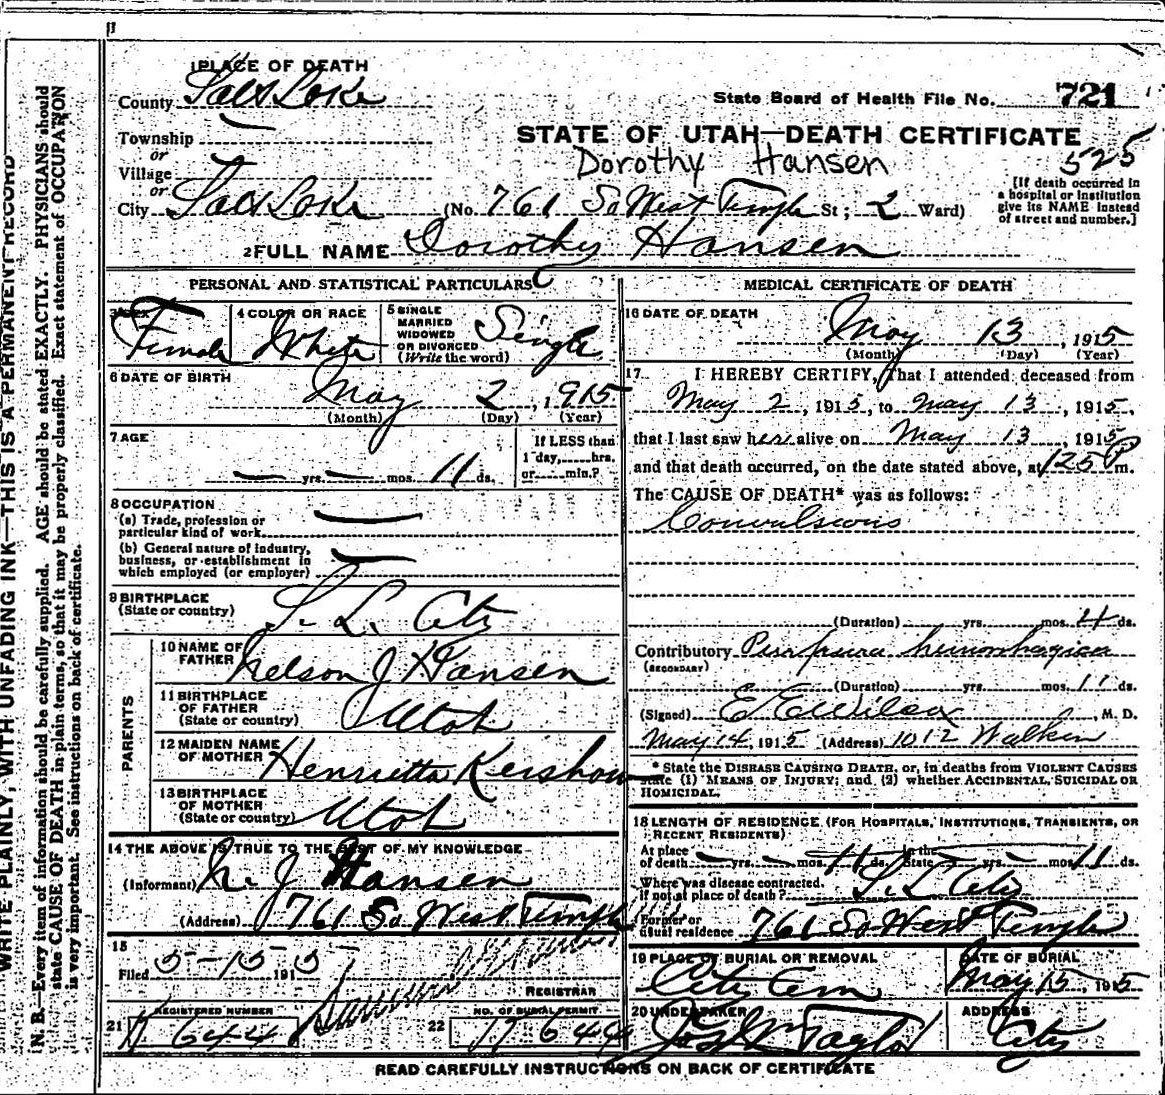 WRITE PLAINLY, WITH UNFADING INK—THIS IS A PERMANENT RECORD
N. B.—Every item of information should be carefully supplied. AGE should be stated EXACTLY. PHYSICIANS should
state CAUSE OF DEATH in plain terms, so that it may be properly classified. Exact statement of OCCUPATION
is very important. See instructions on back of certificate.
1 PLACE OF DEATH
County Salt Lake
State Board of Health File No. 721
Township
or
STATE OF UTAH—DEATH CERTIFICATE
Dorothy Hansen
525
Village
or
City Salt Lake (No. 761 So West Temple St; 2 Ward)
[If death occurred in
a hospital or institution
give its NAME instead
of street and number.]
2 FULL NAME Dorothy Hansen
PERSONAL AND STATISTICAL PARTICULARS
3 SEX
Female
4 COLOR OR RACE
White
5 SINGLE
MARRIED
WIDOWED
OR DIVORCED
(Write the word)
Single
6 DATE OF BIRTH
May 2, 1915
(Month) (Day) (Year)
7 AGE
— yrs. — mos. 11 ds.
If LESS than
1 day,......hrs.
or......min.?
8 OCCUPATION
(a) Trade, profession or
particular kind of work
(b) General nature of industry,
business, or establishment in
which employed (or employer)
9 BIRTHPLACE
(State or country)
S. L. City
PARENTS
10 NAME OF
FATHER
Nelson J Hansen
11 BIRTHPLACE
OF FATHER
(State or country)
Utah
12 MAIDEN NAME
OF MOTHER
Henrietta Kershaw
13 BIRTHPLACE
OF MOTHER
(State or country)
Utah
14 THE ABOVE IS TRUE TO THE BEST OF MY KNOWLEDGE
(Informant) N. J. Hansen
(Address) 761 So West Temple
15
Filed 5-15 1915
REGISTRAR
21 REGISTERED NUMBER
644
22 NO. OF BURIAL PERMIT
644
MEDICAL CERTIFICATE OF DEATH
16 DATE OF DEATH
May 13, 1915
(Month) (Day) (Year)
17 I HEREBY CERTIFY, That I attended deceased from
May 2, 1915, to May 13, 1915,
that I last saw her alive on May 13, 1915,
and that death occurred, on the date stated above, at 125 P m.
The CAUSE OF DEATH* was as follows:
Convulsions
(Duration) yrs. mos. 4 ds.
Contributory Purpura hemorrhagica
(SECONDARY)
(Duration) yrs. mos. 11 ds.
(Signed) E E Wilcox, M. D.
May 14, 1915 (Address) 1012 Walker
* State the DISEASE CAUSING DEATH, or, in deaths from VIOLENT CAUSES
state (1) MEANS OF INJURY; and (2) whether ACCIDENTAL, SUICIDAL OR
HOMICIDAL.
18 LENGTH OF RESIDENCE (FOR HOSPITALS, INSTITUTIONS, TRANSIENTS, OR
RECENT RESIDENTS)
At place
of death — yrs. — mos. 11 ds. In the State — yrs. — mos. 11 ds.
Where was disease contracted,
if not at place of death? S. L. City
Former or
usual residence 761 So West Temple
19 PLACE OF BURIAL OR REMOVAL
City Cem
DATE OF BURIAL
May 15, 1915
20 UNDERTAKER
Jos Wm Taylor
ADDRESS
City
READ CAREFULLY INSTRUCTIONS ON BACK OF CERTIFICATE